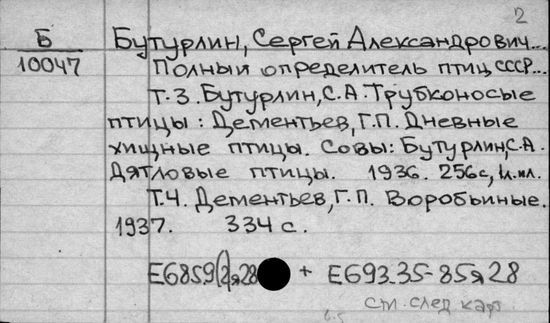 2
Б
10047
Бутурлин, Сергей Александрович...
Полный определитель птиц СССР...
Т.3. Бутурлин, С.А. Трубконосые
птицы: Дементьев, Г.П. Дневные
хищные птицы. Совы: Бутурлин, С.А.
Дятловые птицы. 1936. 256с, ил.
Т.4. Дементьев, Г.П. Воробьиные.
1937. 334 с.
Е6859(2)я28 + Е693.35-85я28
см. след карт.